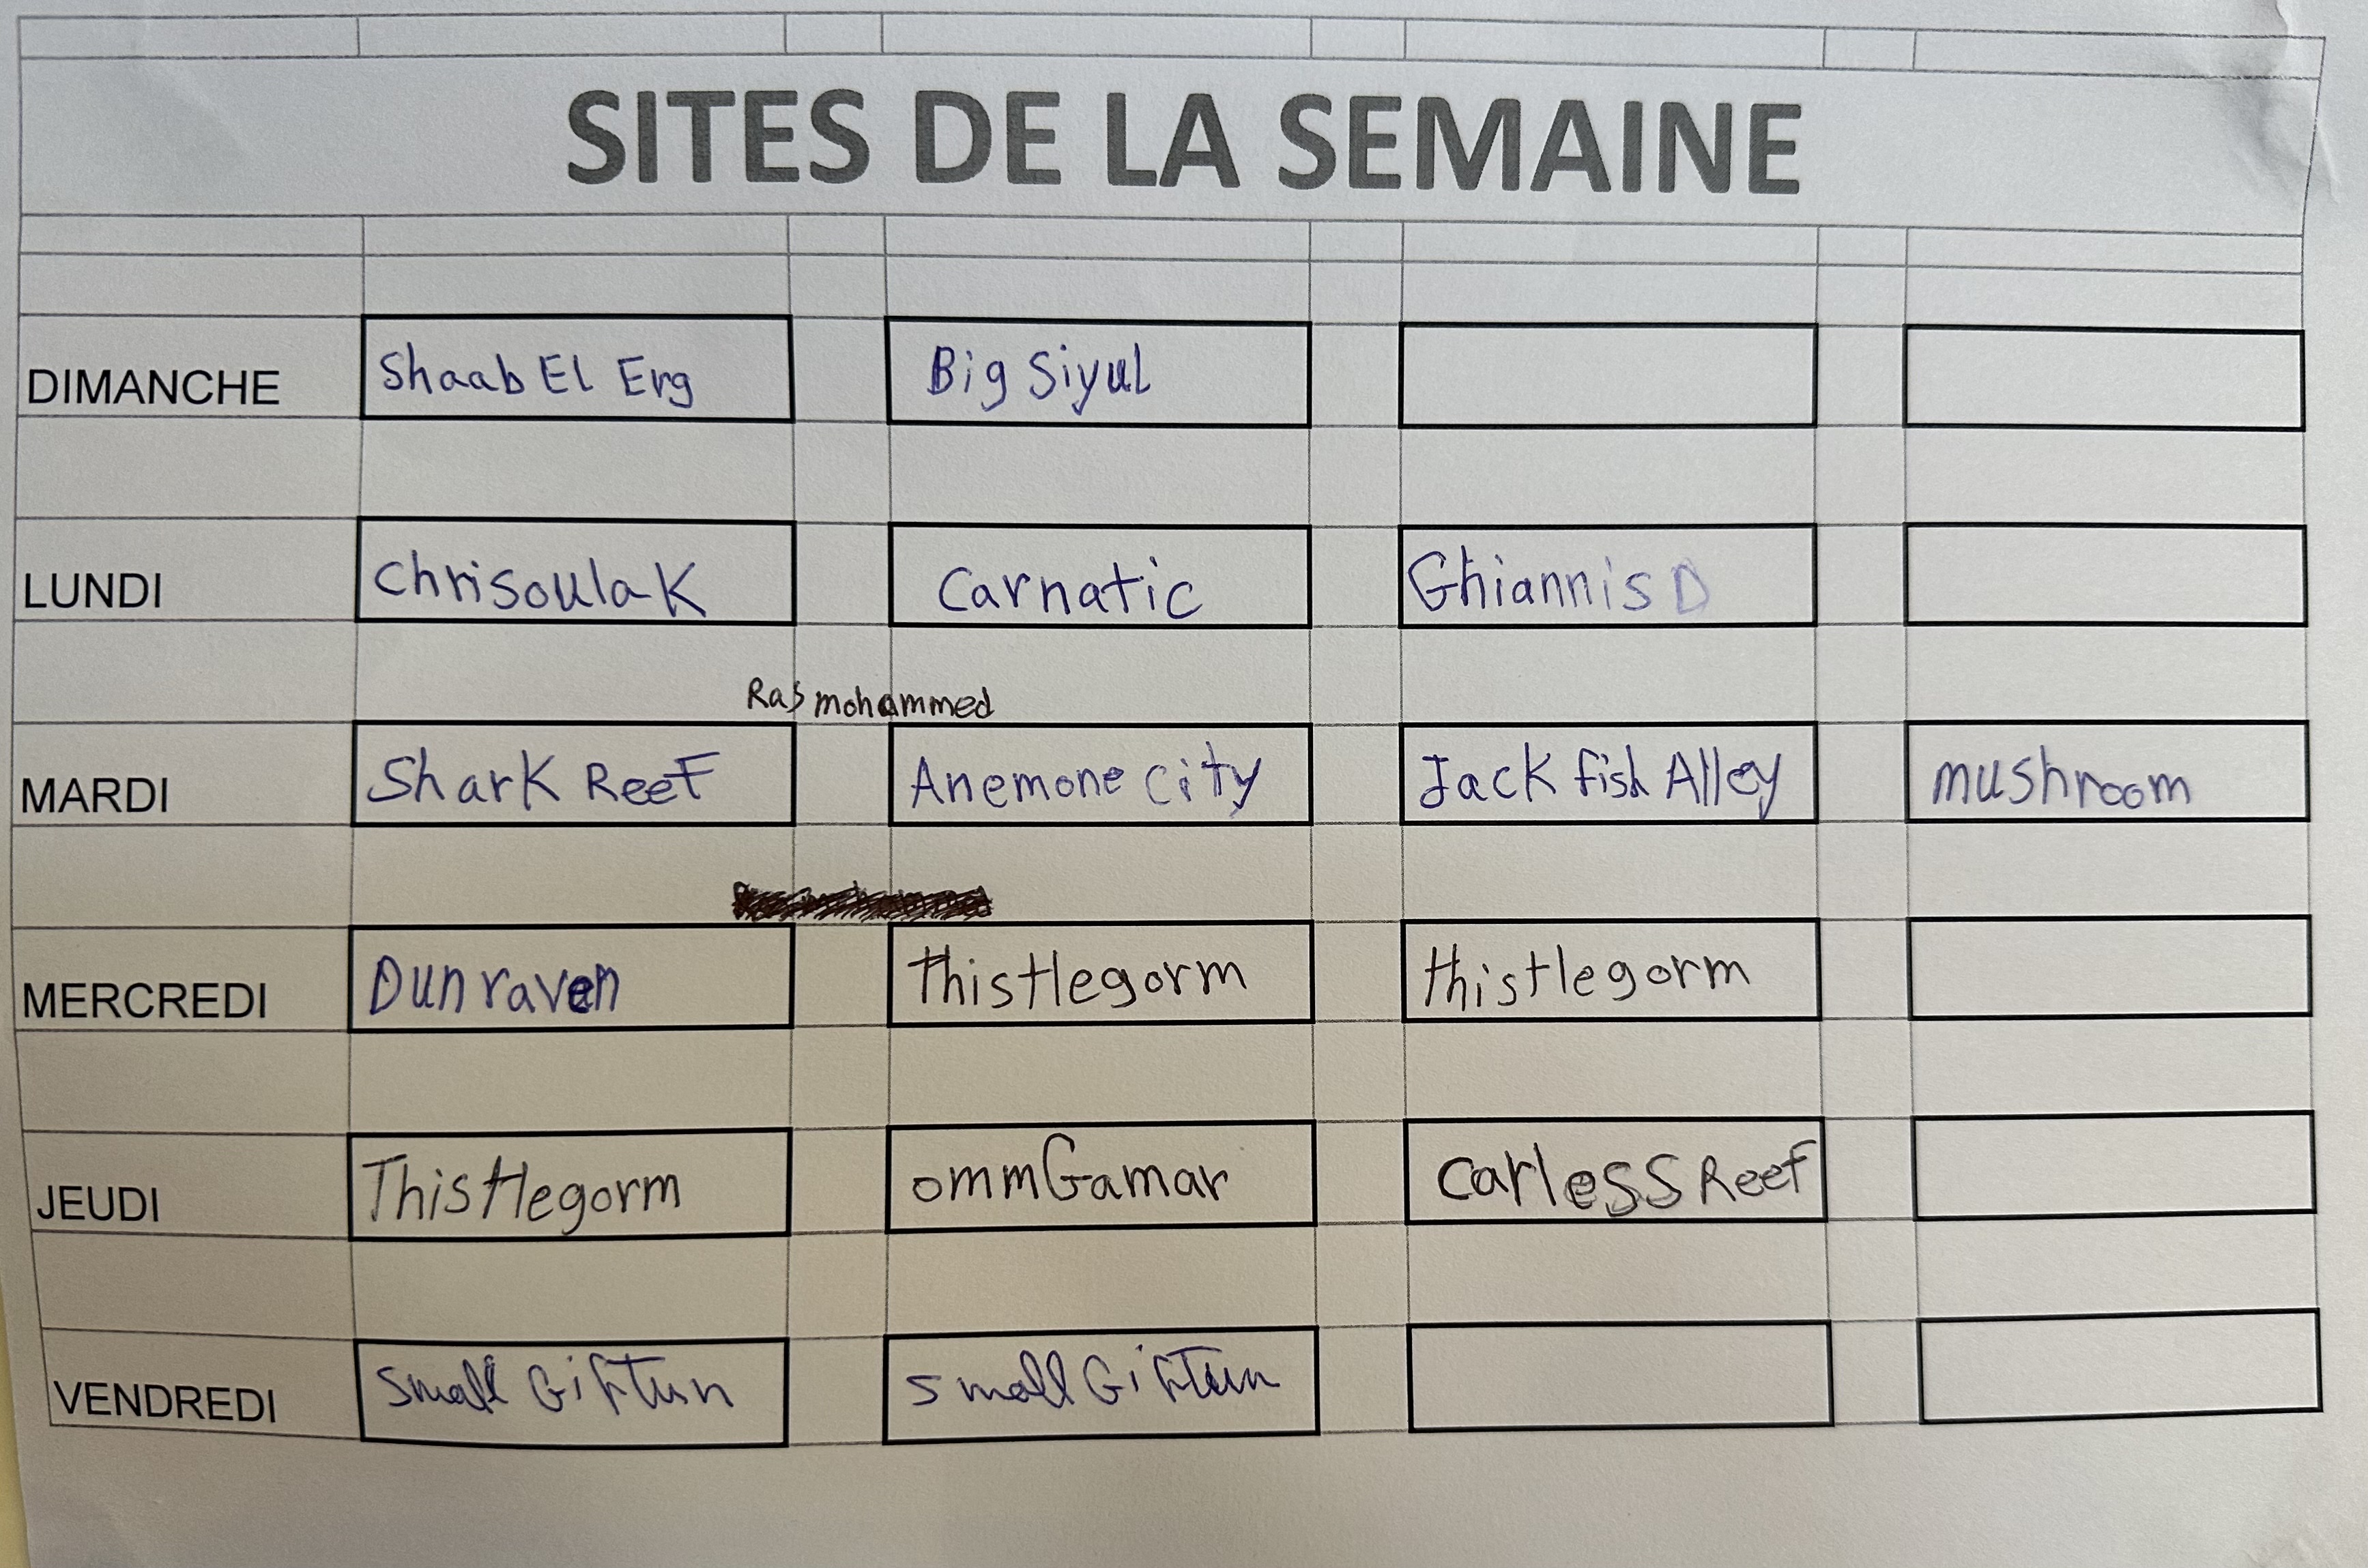 SITES DE LA SEMAINE
DIMANCHE Shaab El Erg Big Siyul
LUNDI ChrisoulaK Carnatic Ghiannis D
Ras mohammed
MARDI Shark Reef Anemone City Jack fish Alley mushroom
MERCREDI Dunraven Thistlegorm thistlegorm
JEUDI Thistlegorm ommGamar Carless Reef
VENDREDI Small Giftun small Giftun